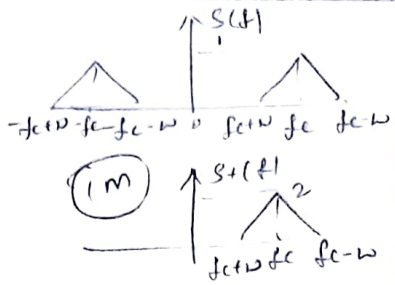 S(f)
1
-fc+W -fc -fc-W 0 fc+W fc fc-W
1M S+(f)
2
fc+W fc fc-W